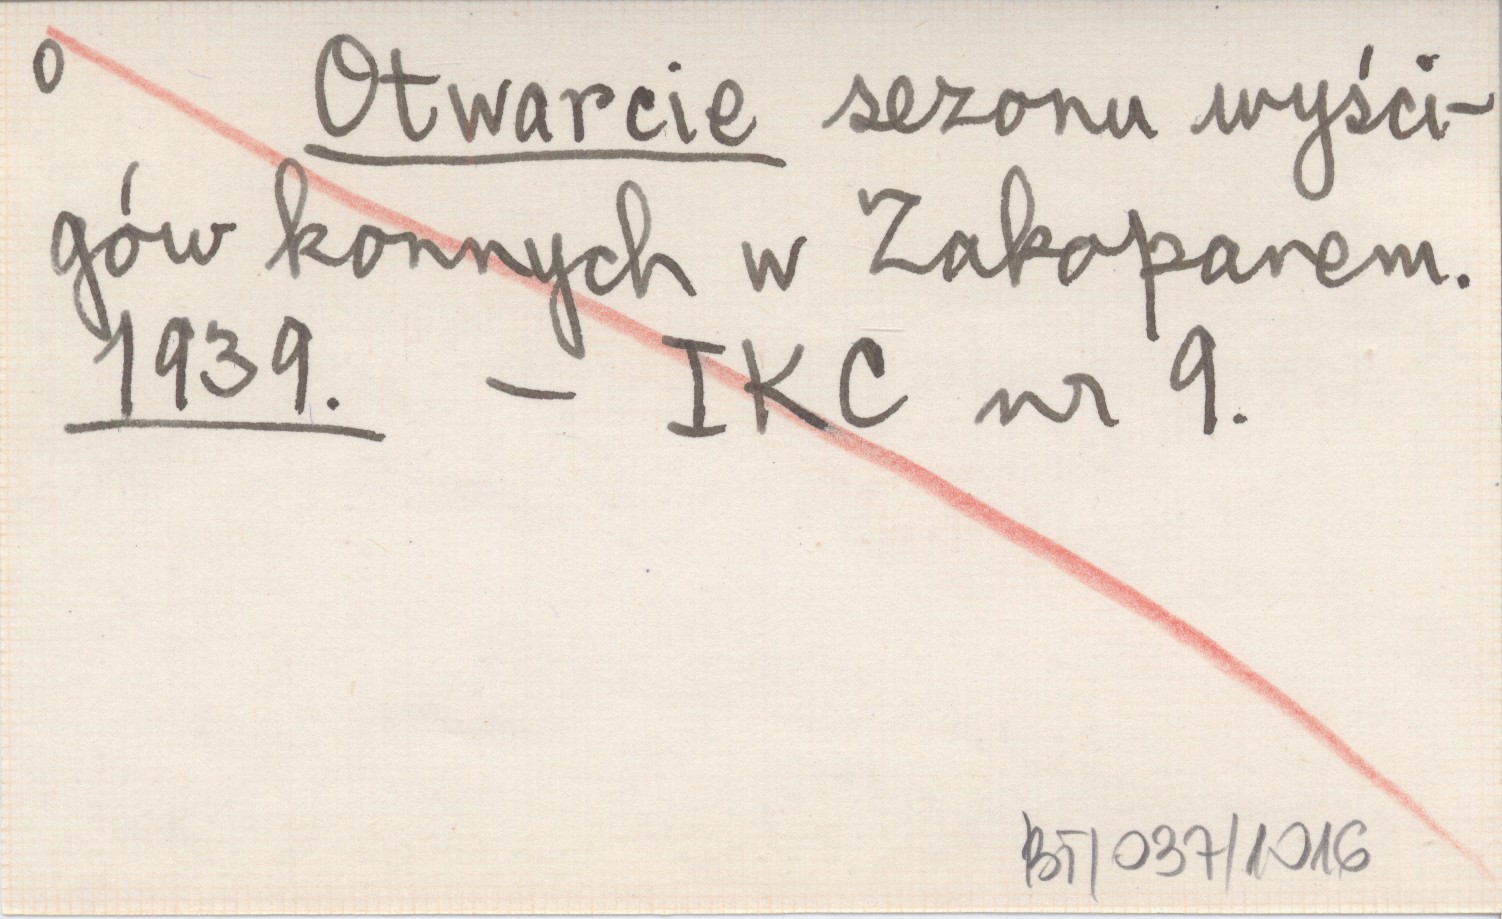 0 Otwarcie sezonu wyści-
gów konnych w Zakopanem.
1939. — IKC nr 9.
BT/037/1016